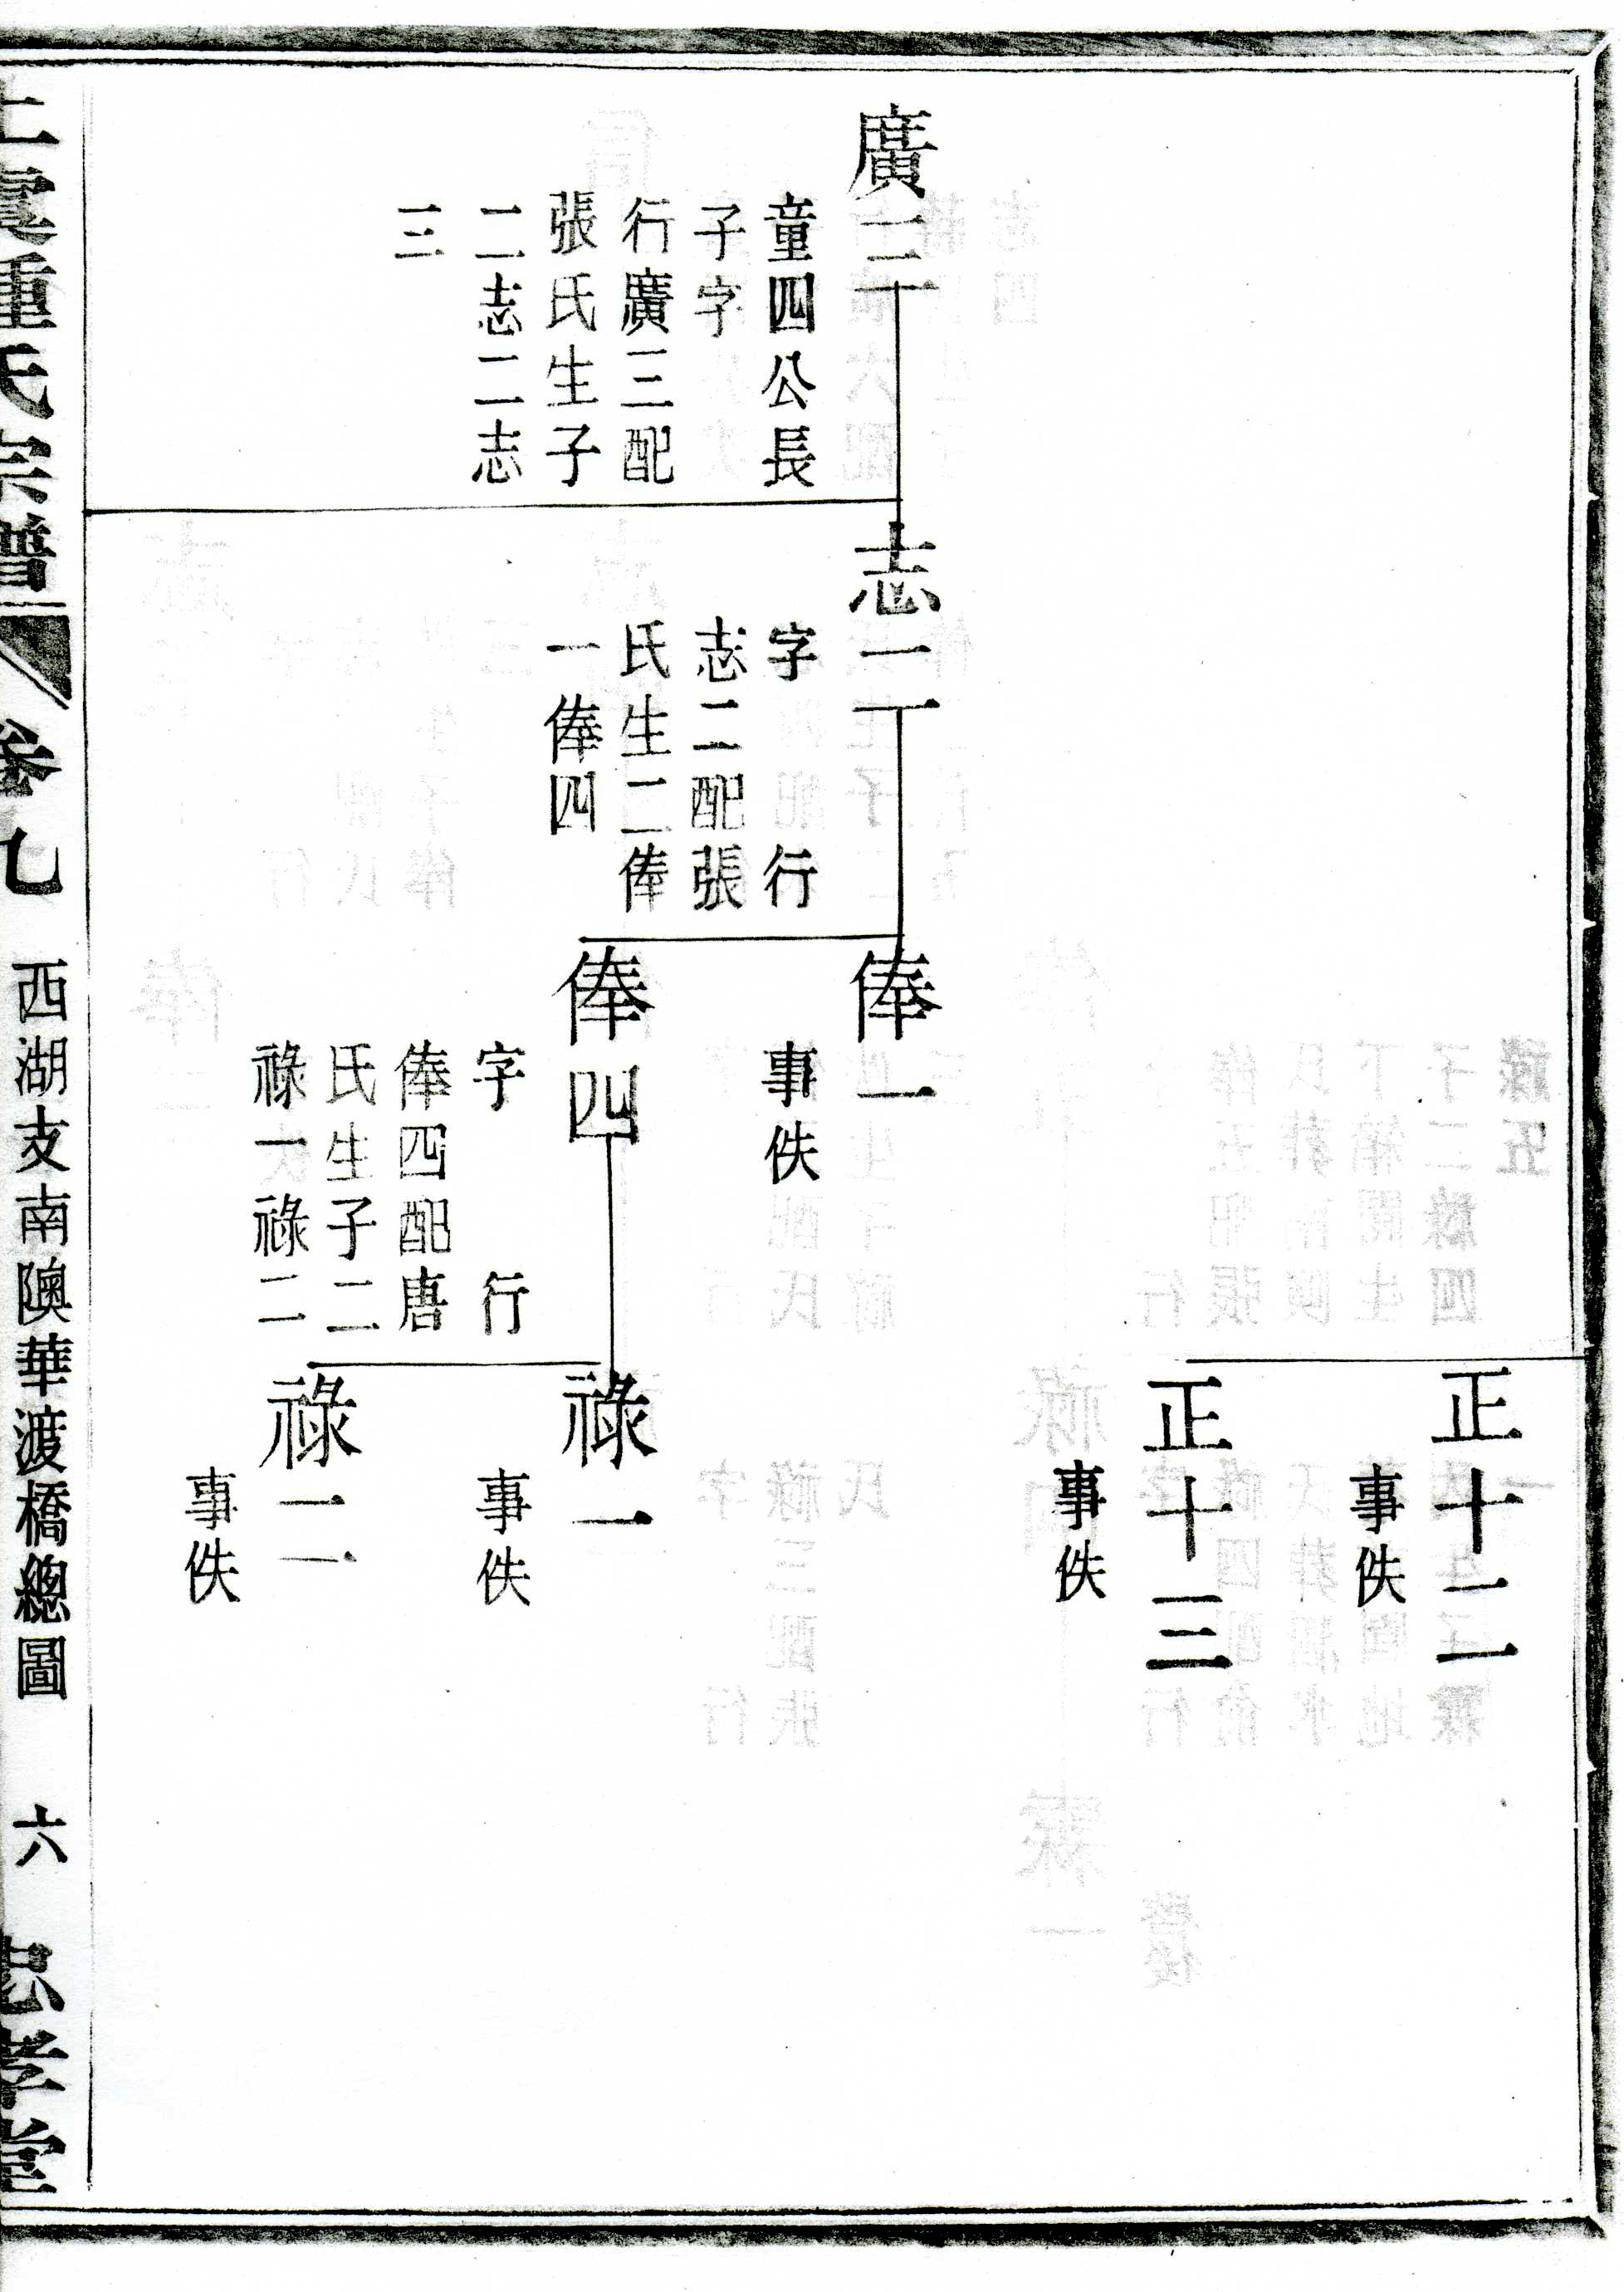 正十二
事佚
正十三
事佚
廣三
童四公長
子字
行廣三配
張氏生子
二志二志
三
志二
字　行
志二配張
氏生二俸
一俸四
俸一
事佚
俸四
字　行
俸四配唐
氏生子二
祿一祿二
祿一
事佚
祿二
事佚
上虞氏宗譜　卷九　西湖支南隩華渡橋總圖　六　忠孝堂